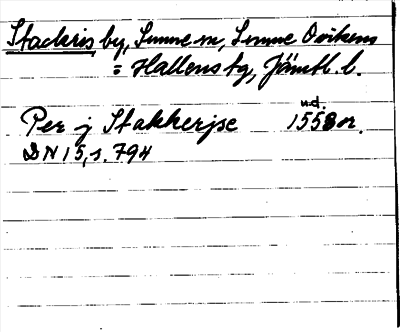 Stackris by, Sunne sn, Sunne Ovikens
= Hallens tg, Jämtl. l.
n.d.
Per j Stakkerjse 1558 or.
DN 15, s. 794